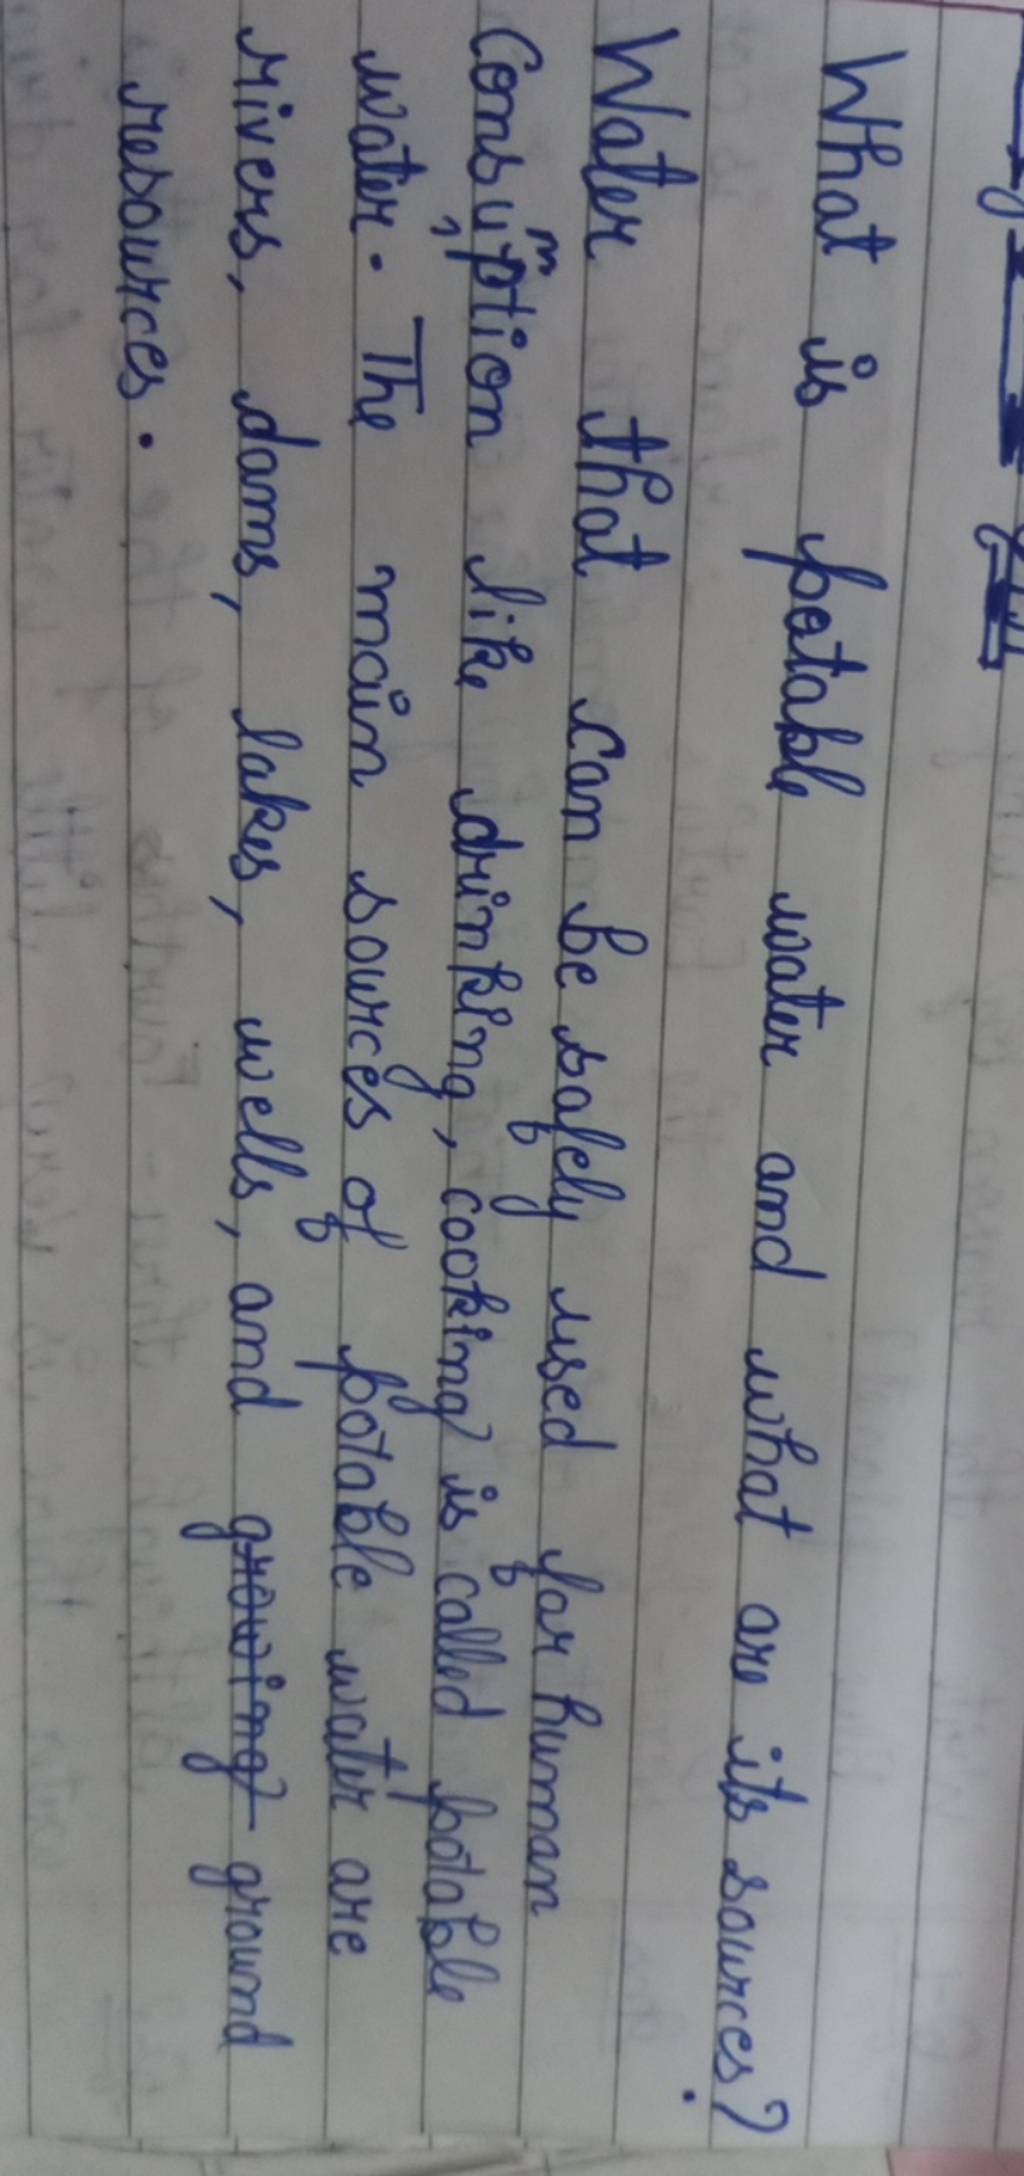 What is potable water and what are its sources?
Water that can be safely used for human
Consumption like drinking, cooking is called potable
water. The main sources of potable water are
rivers, dams, lakes, wells, and growing ground
resources.